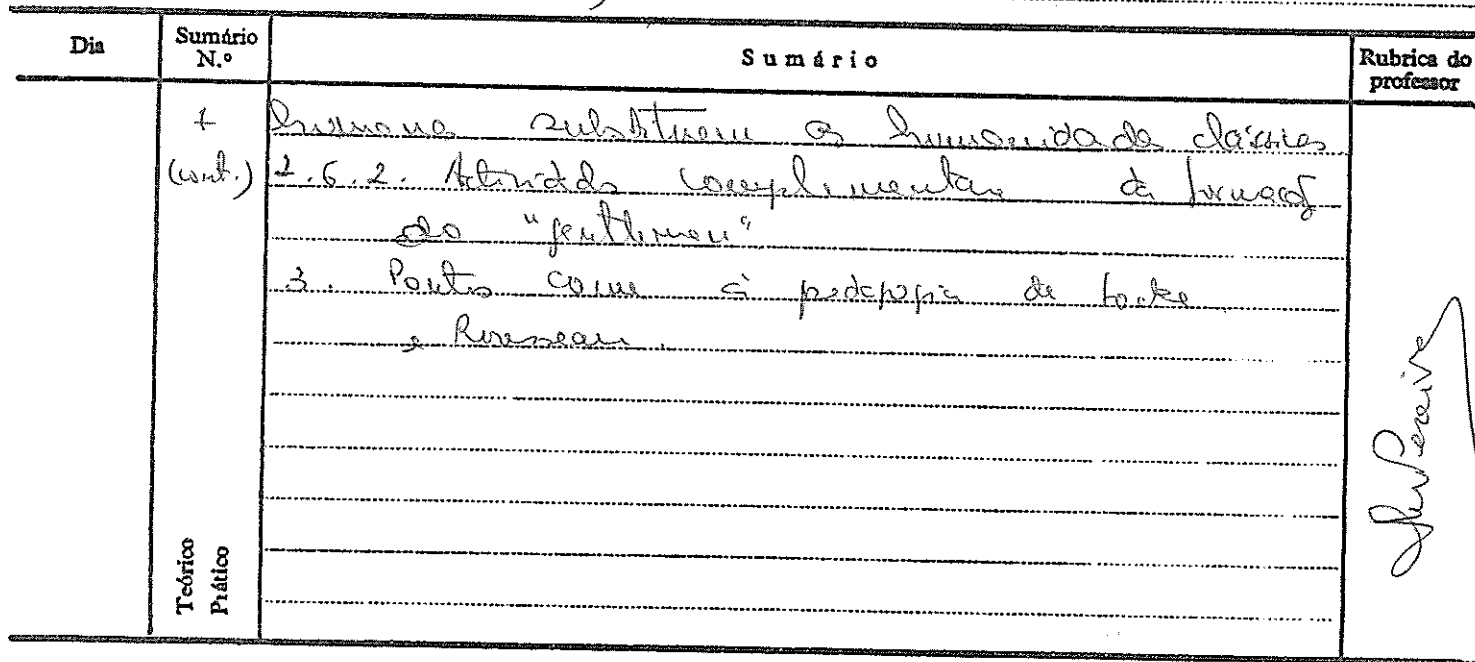 Dia Sumário N.º Sumário Rubrica do professor
1 humanas substituem as humanidades clássicas
(cont.) 2.6.2. Actividades complementares da formação
do "gentleman"
3. Pontos comuns à pedagogia de Locke
e Rousseau.
Teórico
Prático